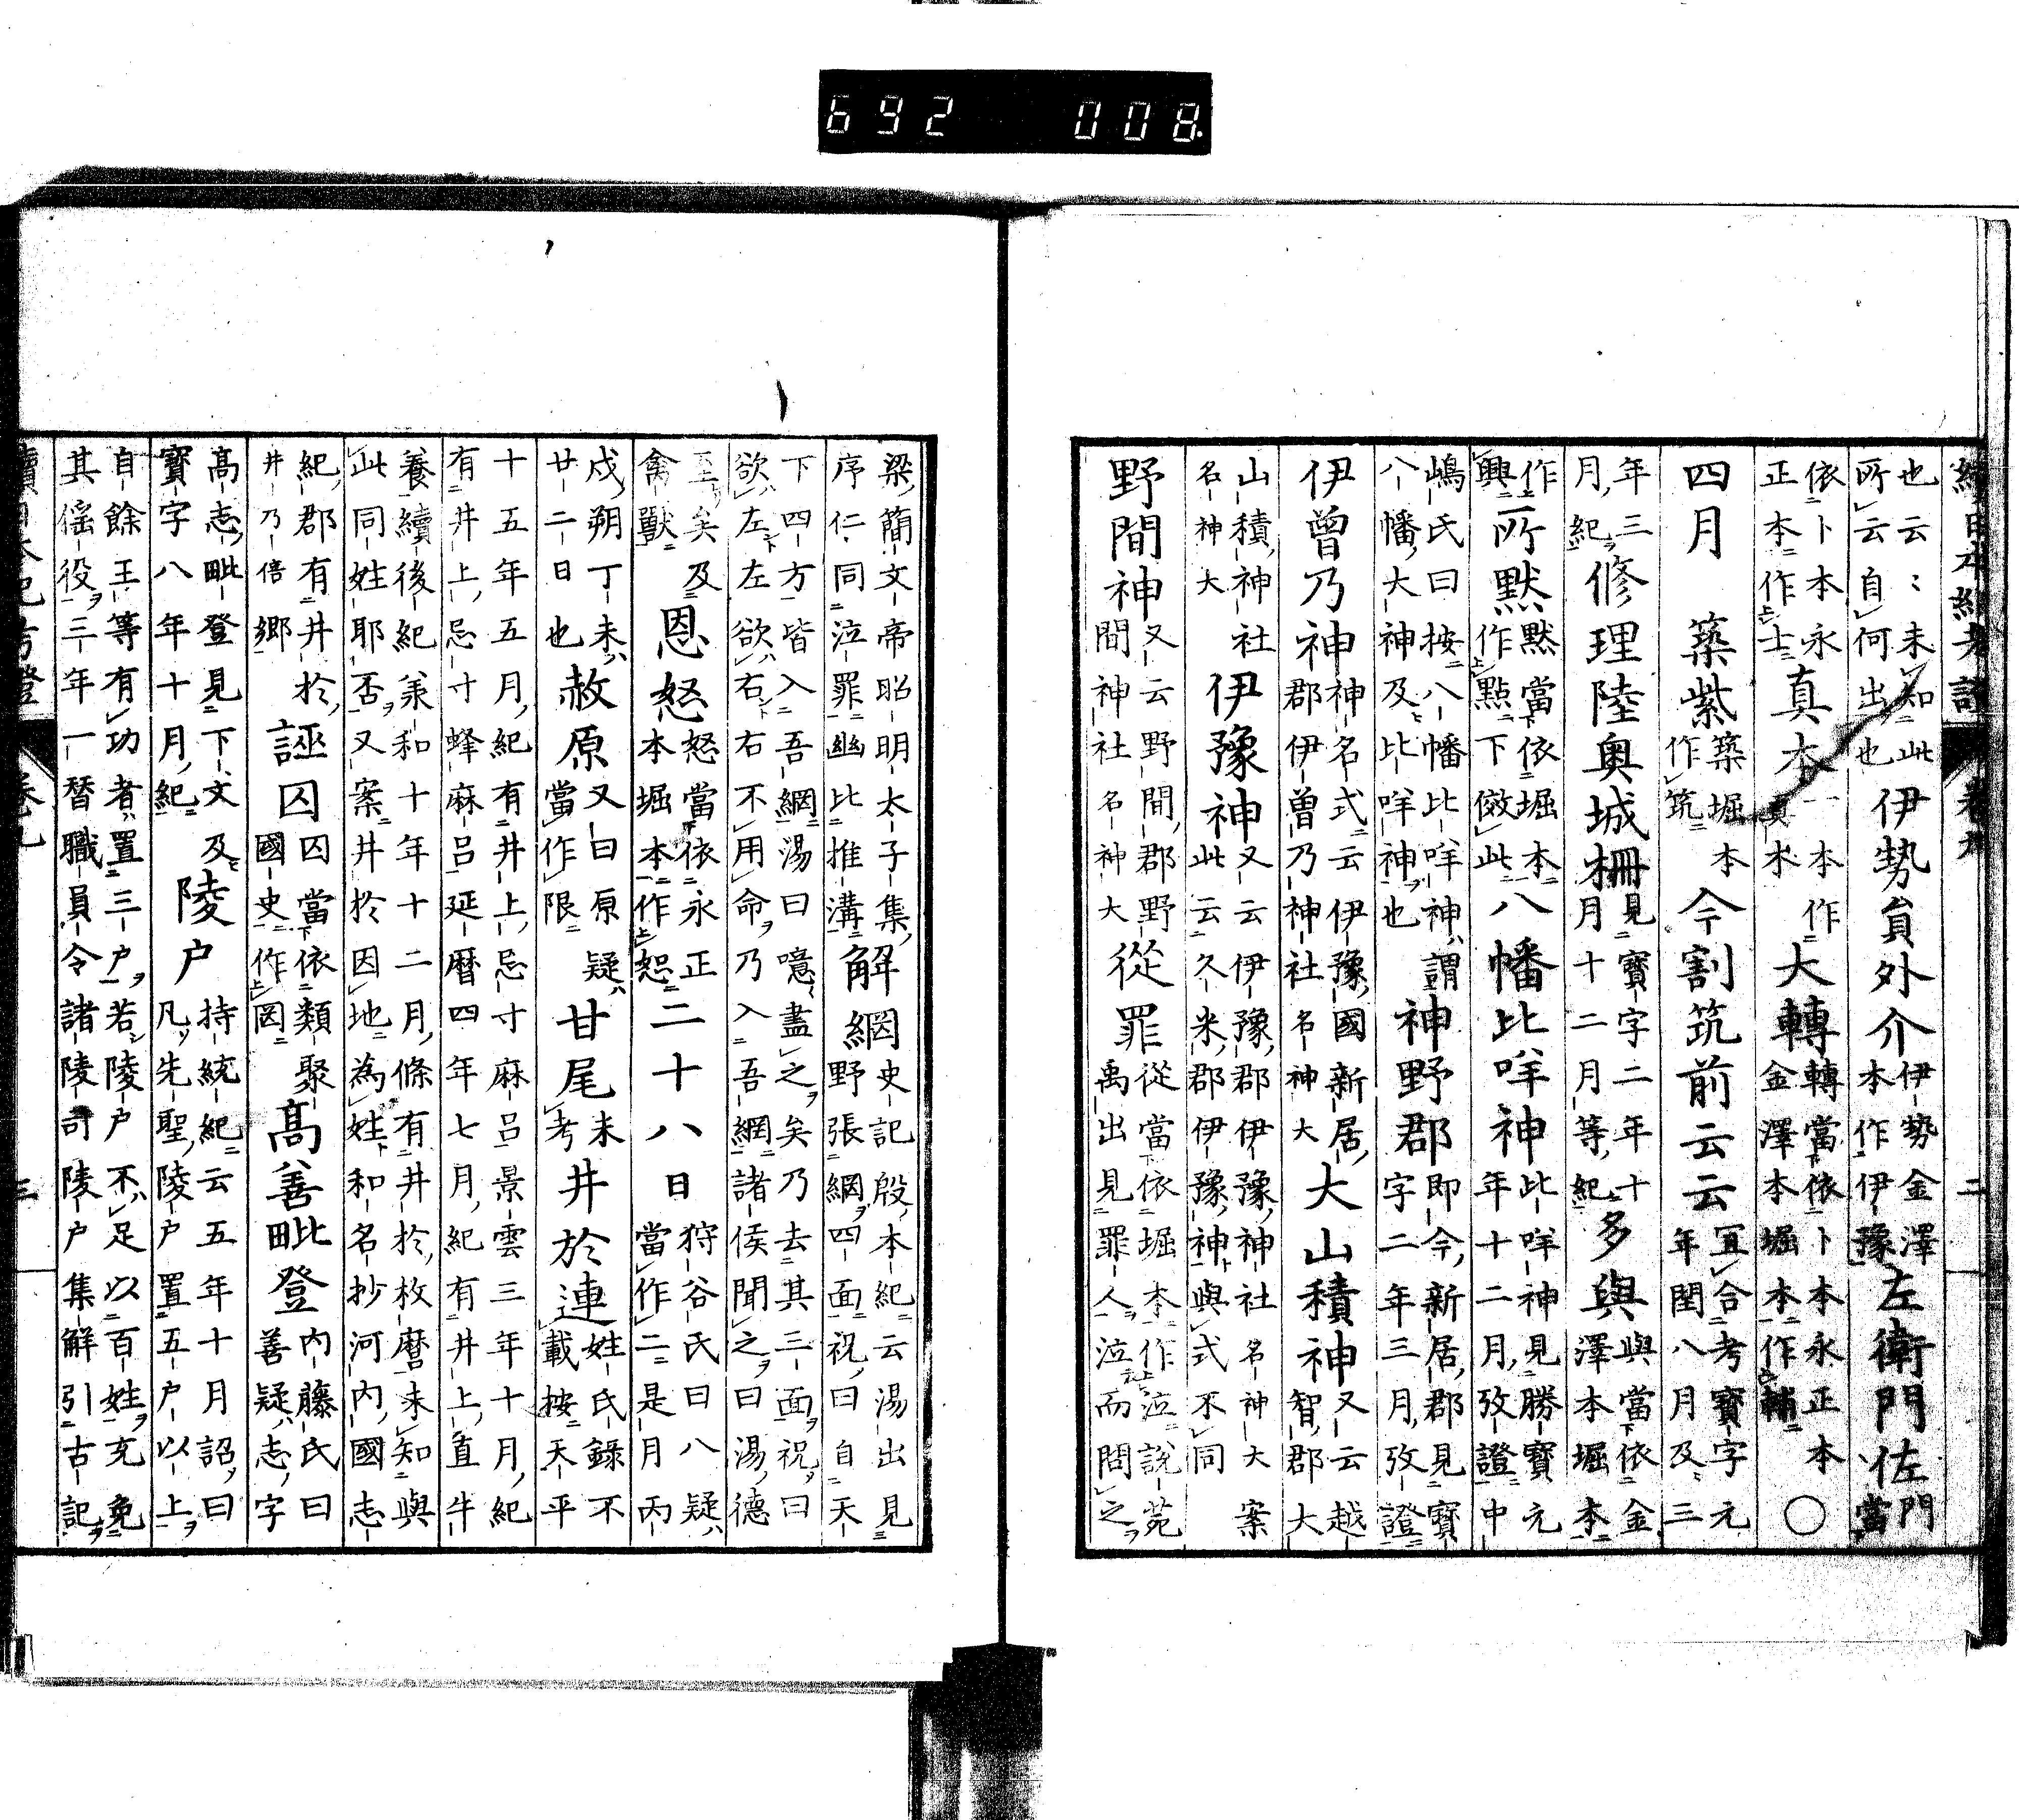 續日本紀考證 卷九 二
也云〻未知此所云自何出也伊勢貟外介伊勢金澤本作伊豫左衛門佐門當
依卜本永正本作士真本一本作真木大轉轉當依卜本永正本金澤本堀本作輔〇
四月 築紫築堀本作筑今割筑前云云冝合考寳字元年閏八月及三
年三月紀修理陸奥城柵見寳字二年十月十二月等紀多與與當依金澤本堀本
作興二所黙黙當依堀本作點下傚此八幡比咩神比咩神見勝寳元年十二月攷證中
嶋氏曰按八幡比咩神謂八幡大神及比咩神也神野郡即今新居郡見寳字二年三月攷證
伊曾乃神神名式云伊豫國新居郡伊曽乃神社名神大大山積神又云越智郡大
山積神社名神大伊豫神又云伊豫郡伊豫神社名神大案此云久米郡伊豫神與式不同
野間神又云野間郡野間神社名神大從罪從當依堀本作泣說苑禹出見罪人泣而問之
梁簡文帝昭明太子集序仁同泣罪幽比推溝解網史記殷本紀云湯出見野張網四面祝曰自天
下四方皆入吾網湯曰噫盡之矣乃去其三面祝曰欲左左欲右右不用命乃入吾網諸侯聞之曰湯德
至矣及禽獸恩怒怒當依永正本堀本作恕二十八日狩谷氏曰八疑當作二是月丙
戍朔丁未廿二日也赦原又曰原疑當作限甘尾未考井於連姓氏録不載按天平
十五年五月紀有井上忌寸麻呂景雲三年十月紀有井上忌寸蜂麻呂延暦四年七月紀有井上直牛
養續後紀羕和十年十二月條有井於枚麿未知與此同姓耶否又案井於因地為姓和名抄河内國志
紀郡有井於井乃倍郷誣囚囚當依類聚國史作罔髙善毗登内藤氏曰善疑志字
髙志毗登見下文及寳字八年十月紀陵户持統紀云五年十月詔曰凡先聖陵户置五户以上
自餘王等有功者置三户若陵户不足以百姓充免其徭役三年一替職員令諸陵司陵户集解引古記
續日本紀考證 卷九 三
692 008